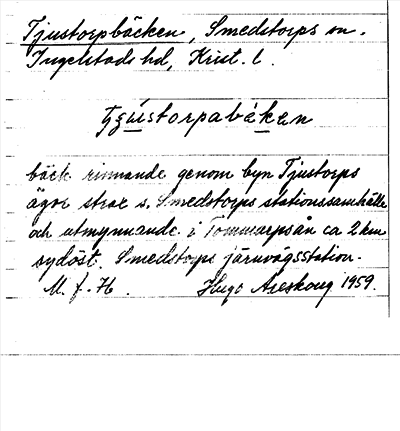 Tjustorpbäcken, Smedstorps sn.
Ingelstads hd, Krist. l.
bäck rinnande genom byn Tjustorps
ägor strax s. Smedstorps stationssamhälle
och utmynnande i Tommarpsån ca 2 km
sydöst. Smedstorps järnvägsstation.
M. f. H. Hugo Areskoug 1959.